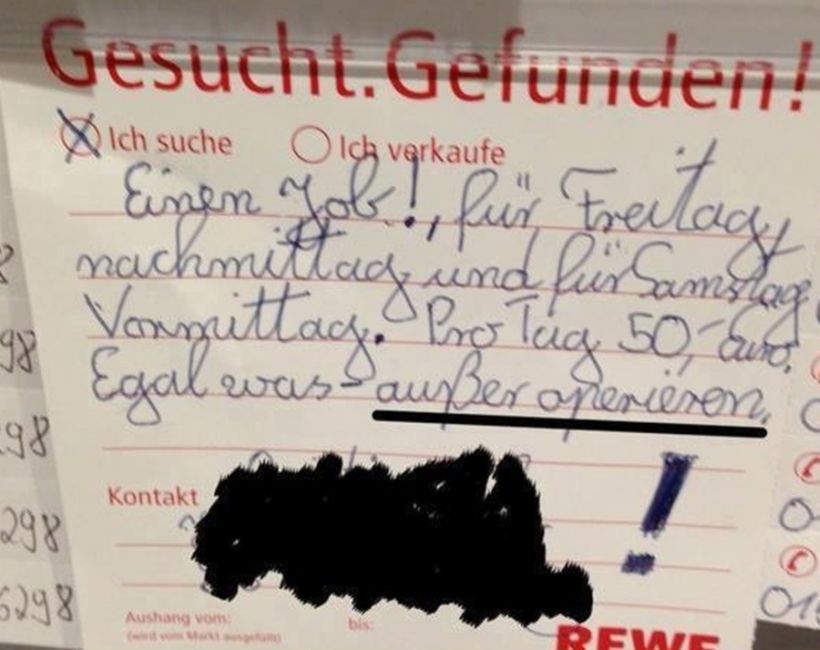 Gesucht.Gefunden!
Ich suche Ich verkaufe
Einen Job!, für Freitag,
nachmittag und für Samstag
Vormittag. Pro Tag 50,- Euro.
Egal was - außer operieren.
!
Kontakt
Aushang vom: bis:
(wird vom Markt ausgefüllt)
REWE
98
298
298
6298